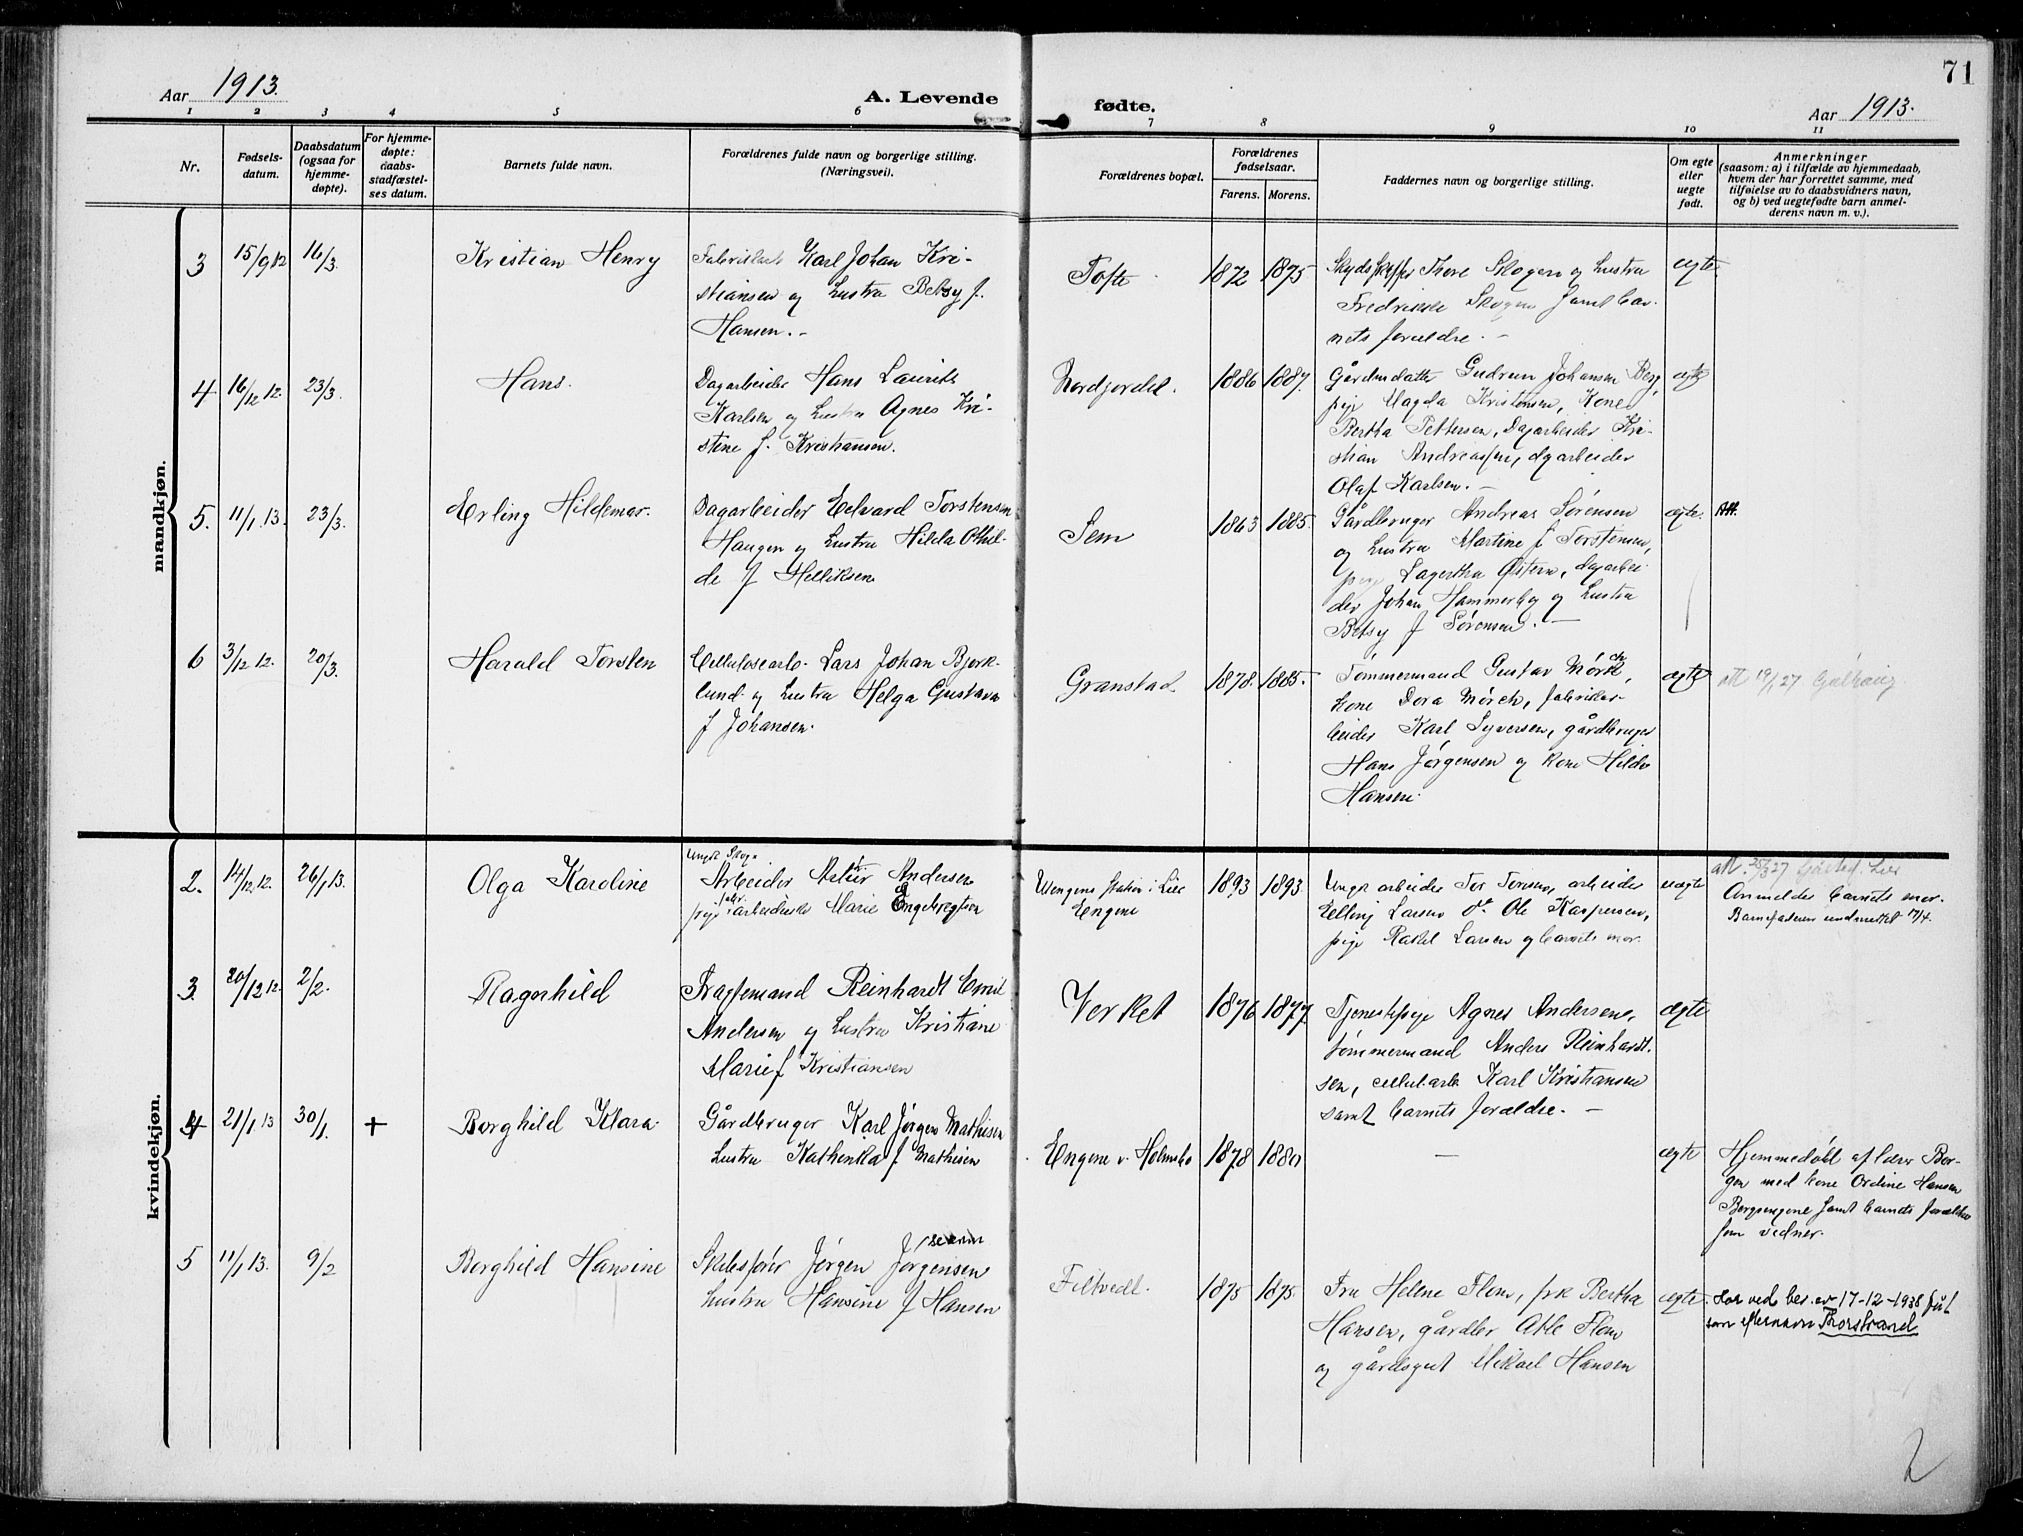 71
Aar 1913.
A. Levende fødte.
Aar 1913.
1 2 3 4 5 6 7 8 9 10 11
Nr.
Fødsels-
datum.
Daabsdatum
(ogsaa for
hjemme-
døpte).
For hjemme-
døpte:
daabs-
stadfæstel-
ses datum.
Barnets fulde navn.
Forældrenes fulde navn og borgerlige stilling.
(Næringsvei).
Forældrenes bopæl.
Forældrenes
fødselsaar.
Farens. Morens.
Faddernes navn og borgerlige stilling.
Om egte
eller
uegte
født.
Anmerkninger
(saasom: a) i tilfælde av hjemmedaab,
hvem der har forrettet samme, med
tilføielse av to daabsvidners navn,
og b) ved uegtefødte barn anmel-
derens navn m. v.).
mandkjøn.
3 15/9 12 16/3. Kristian Henry
Karl Johan Kri-
stiansen og Hustru Betsy f.
Hansen.-
Tofte 1872 1875
Thore Skogen og Hustru
Fredrikke Skogen samt bar-
nets forældre.-
ægte
4 16/12 12. 23/3. Hans.
Dagarbeider Hans Laurits
Karlsen og Hustru Agnes Kri-
stine f. Kristiansen.
Nordjordet. 1886 1887.
Gudrun Johansen Berg,
pige Magda Kristensen, Kone
Bertha Pettersen, Dagarbeider Kri-
stian Andreassen, dgarbeider
Olaf Karlsen.-
ægte
5. 11/1 13. 23/3. Erling Hildemar.
Dagarbeider Edvard Torstensen
Haugen og Hustru Hilda Othil-
de f Helliksen
Sem 1863 1885.
Gårdbruger Andreas Sørensen
og Hustru Martine f Torstensen,
pige Lagertha dgarbei-
der Johan Hammerbeg og Hustru
Betsy f Sørensen.-
ægte. Att.
6 3/12 12. 20/3. Harald Torsten
Cellulosearb. Lars Johan Bjørk-
lund og Hustru Helga Gustava
f Johansen.
Granstad. 1878. 1885.
Tømmermand Gustav Mørch,
kone Dora Mørch, fabrikar-
beider Karl Syversen, gårdbruger
Hans Jørgensen og kone Hilda
Hansen.
ægte att 19/1 27
kvindekjøn.
2. 14/12 12. 26/1 13. Olga Karoline
Ungk. Skog.
Arbeider Artur Andersen
pige fabr. arbeiderske Marie Engebregtsen
Station i Lier
Engene
1893 1893
Ungk arbeider Tor arbeider
Elling Larsen do Ole Kaspersen,
pige Rakel Larsen og barnets mor.
uægte
Lier
Anmelder barnets mor.
Barnefaderen 17/4.
3. 20/12 12. 2/2. Ragnhild
Reinhardt Emil
Andersen og Hustru Kristiane
Marie f Kristiansen
Verket 1876 1877.
Tjenestepige Agnes Andersen,
tømmermand Anders Reinhardt-
sen, cellularb Karl Kristiansen
samt barnets forældre.-
ægte
4 21/1 13 30/1. + Borghild Klara.
Gårdbruger Karl Jørgen Mathisen
Hustru Kathinka f Mathisen
Engene v. Holmsbo 1878 1880
—
ægte
Hjemmedøbt af lærer Bor-
gen med kone Ordine Hansen
Borgengene samt barnets forældre
som vidner.
5 11/1 13. 9/2 Borghild Hansine
Skibsfører Jørgen Jørgensen
Hustru Hansine f Hansen
Filtvedt. 1875 1875
Fru Helene Flom, frk Bertha
Hansen, gårdbr Atle Flom
og gårdsgut Mikael Hansen
ægte.
Har ved bev. av 17-12-1938 fåt
som efternavn Thorstrand
2